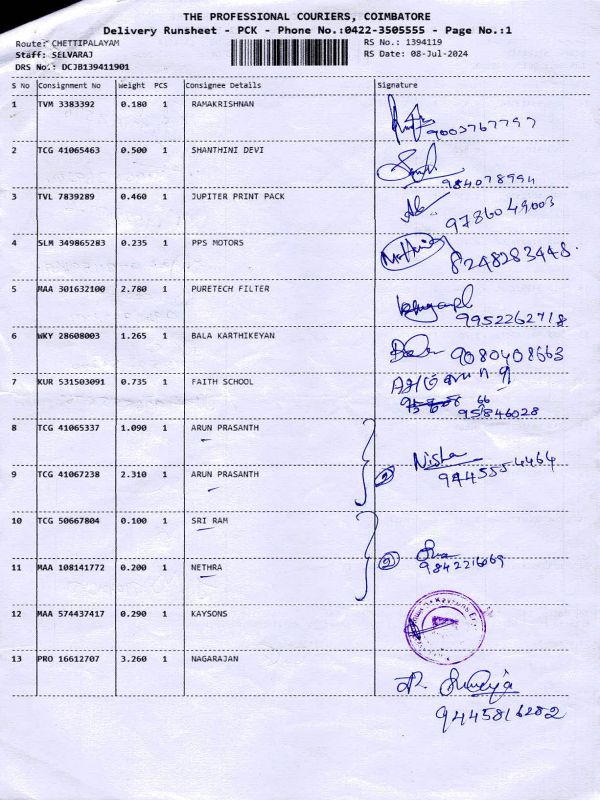 THE PROFESSIONAL COURIERS, COIMBATORE
Delivery Runsheet - PCK - Phone No.:0422-3505555 - Page No.:1
Route: CHETTIPALAYAM RS No.: 1394119
Staff: SELVARAJ RS Date: 08-Jul-2024
DRS No.: DCJB139411901
S No Consignment No Weight PCS Consignee Details Signature
1 TVM 3383392 0.180 1 RAMAKRISHNAN
9003767797
2 TCG 41065463 0.500 1 SHANTHINI DEVI
984078994
3 TVL 7839289 0.460 1 JUPITER PRINT PACK
9786049003
4 SLM 349865283 0.235 1 PPS MOTORS
8248283448.
5 MAA 301632100 2.780 1 PURETECH FILTER
9952262718
6 WKY 28608003 1.265 1 BALA KARTHIKEYAN
9080408663
7 KUR 531503091 0.735 1 FAITH SCHOOL
66
95846028
8 TCG 41065337 1.090 1 ARUN PRASANTH
Nisha
9 TCG 41067238 2.310 1 ARUN PRASANTH 2
9445554464
10 TCG 50667804 0.100 1 SRI RAM
11 MAA 108141772 0.200 1 NETHRA 2
9842216069
12 MAA 574437417 0.290 1 KAYSONS
13 PRO 16612707 3.260 1 NAGARAJAN
9445816282